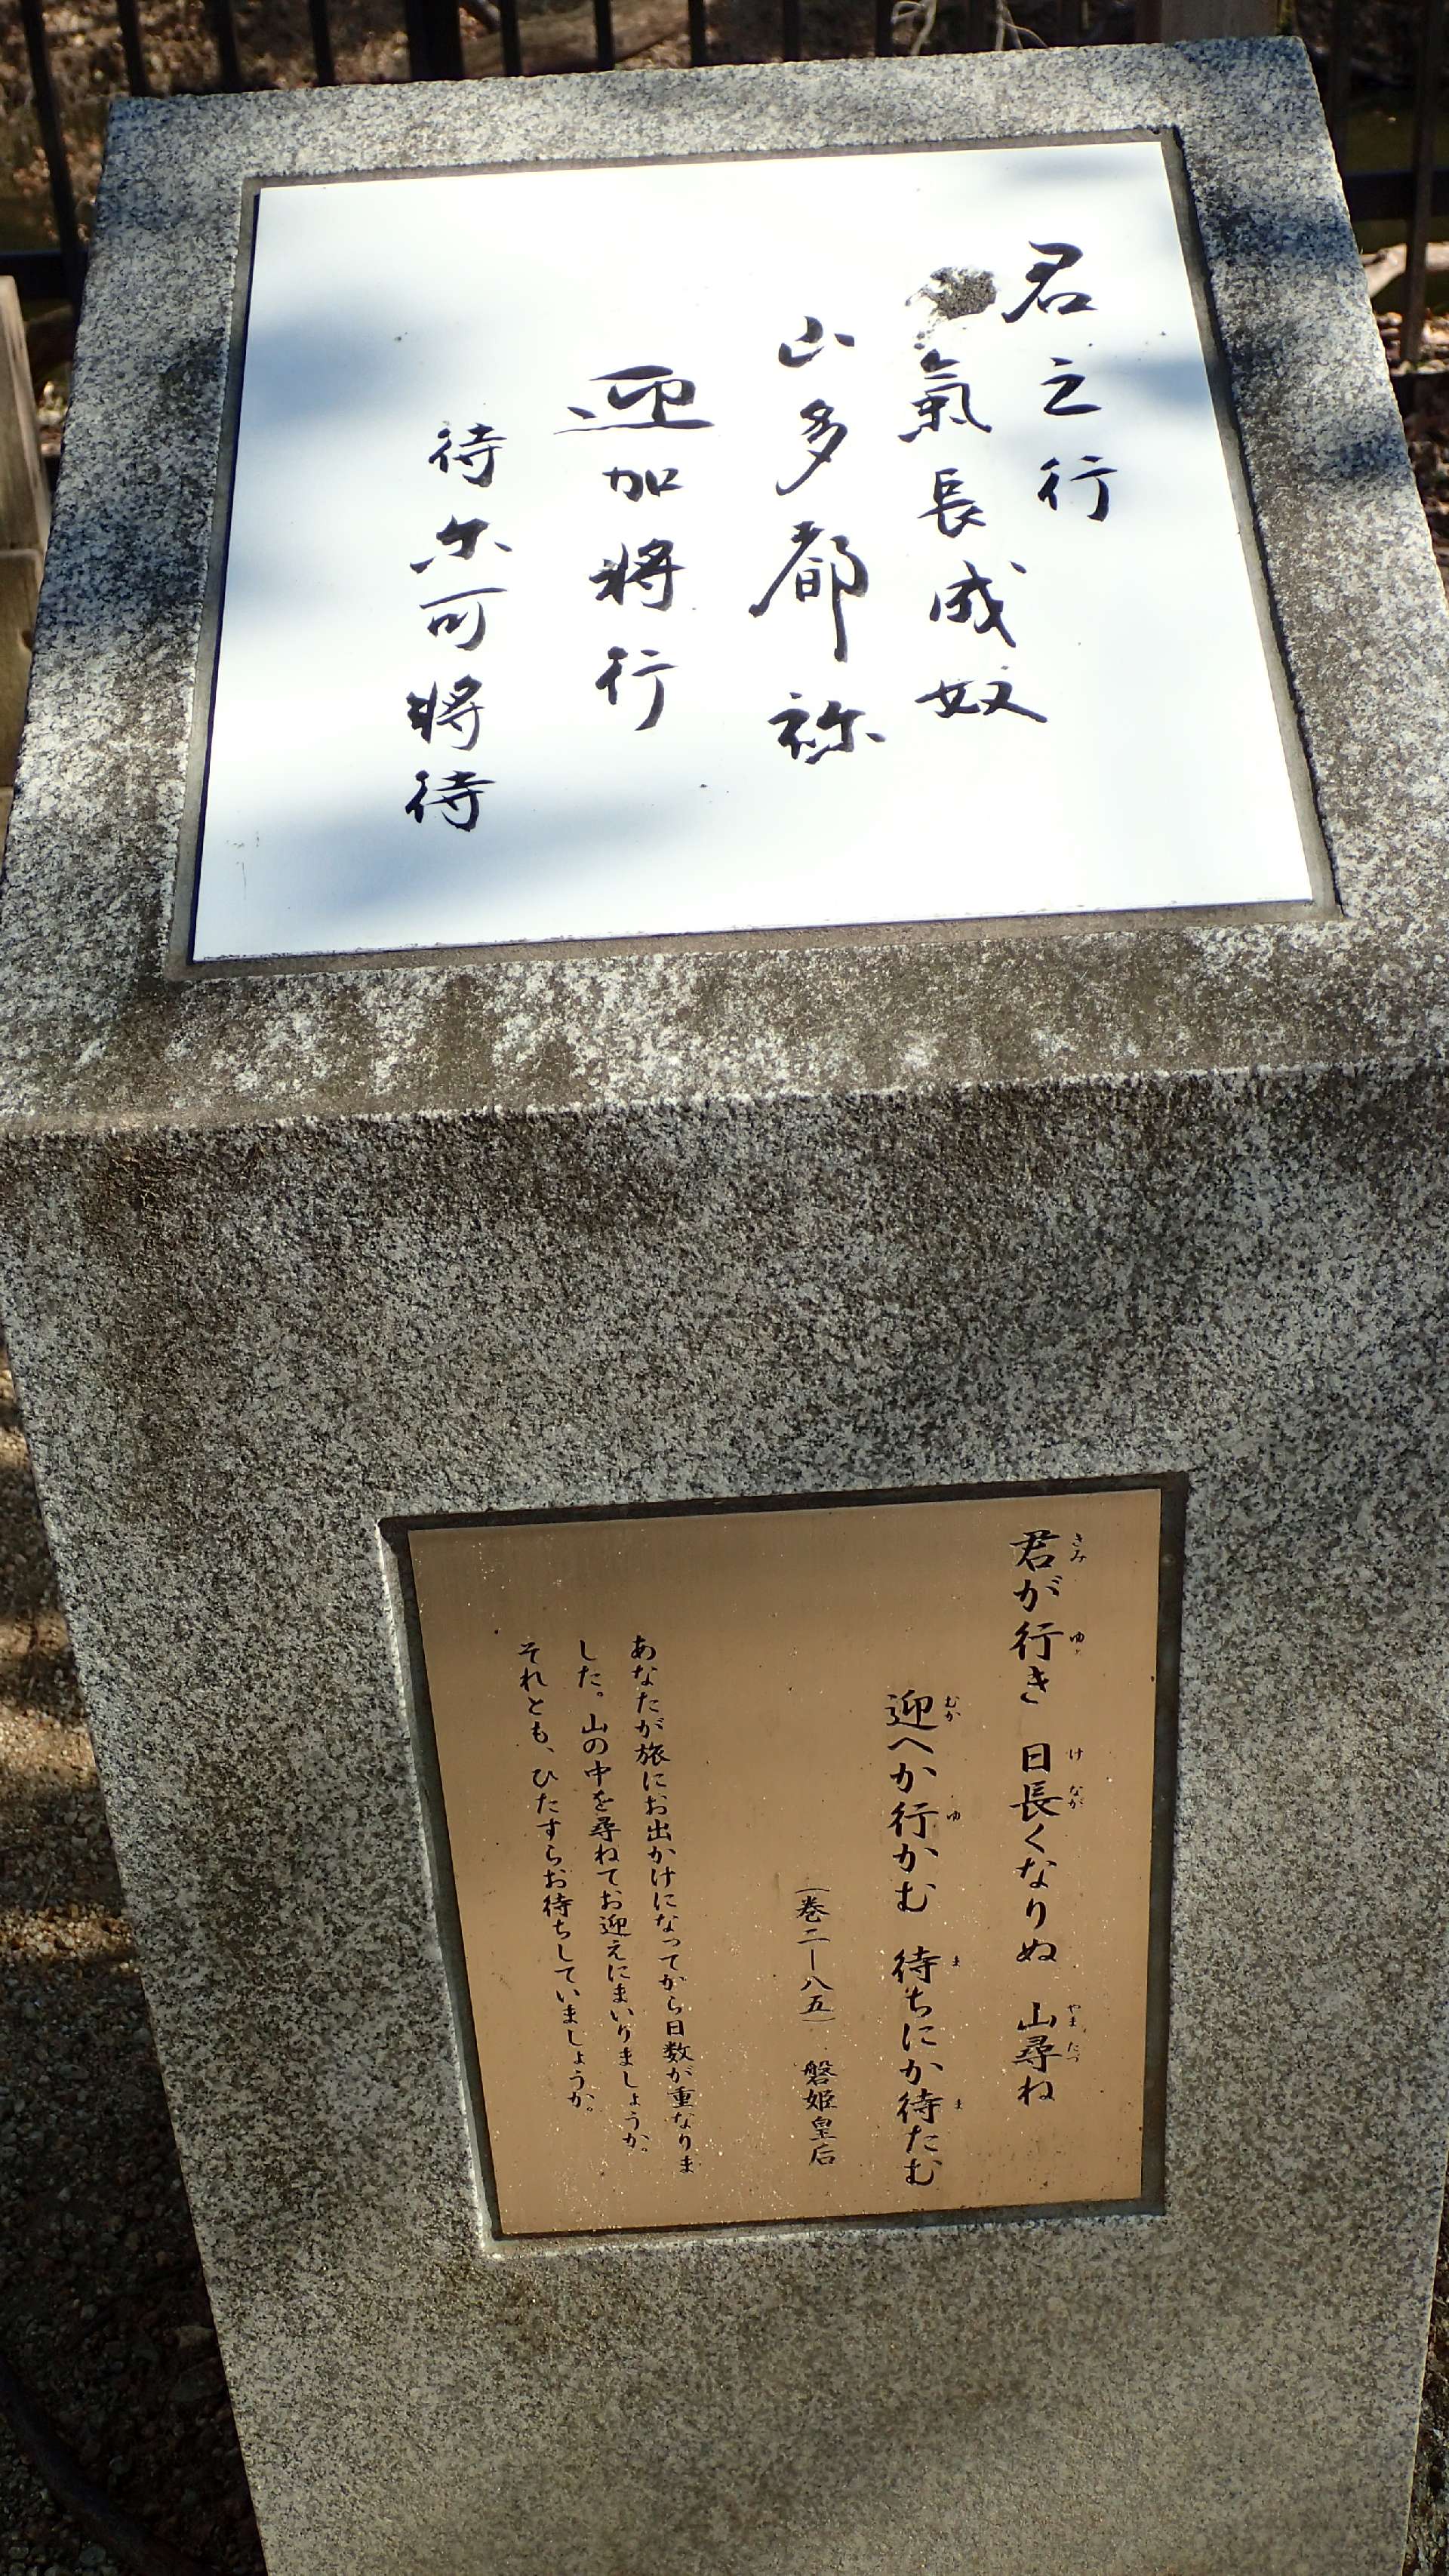 君之行
氣長成奴
山多都祢
迎加将行
待尓可将待
君が行き 日長くなりぬ 山尋ね
迎へか行かむ 待ちにか待たむ
(巻二―八五) 磐姫皇后
あなたが旅にお出かけになってから日数が重なりま
した。山の中を尋ねてお迎えにまいりましょうか。
それとも、ひたすらお待ちしていましょうか。